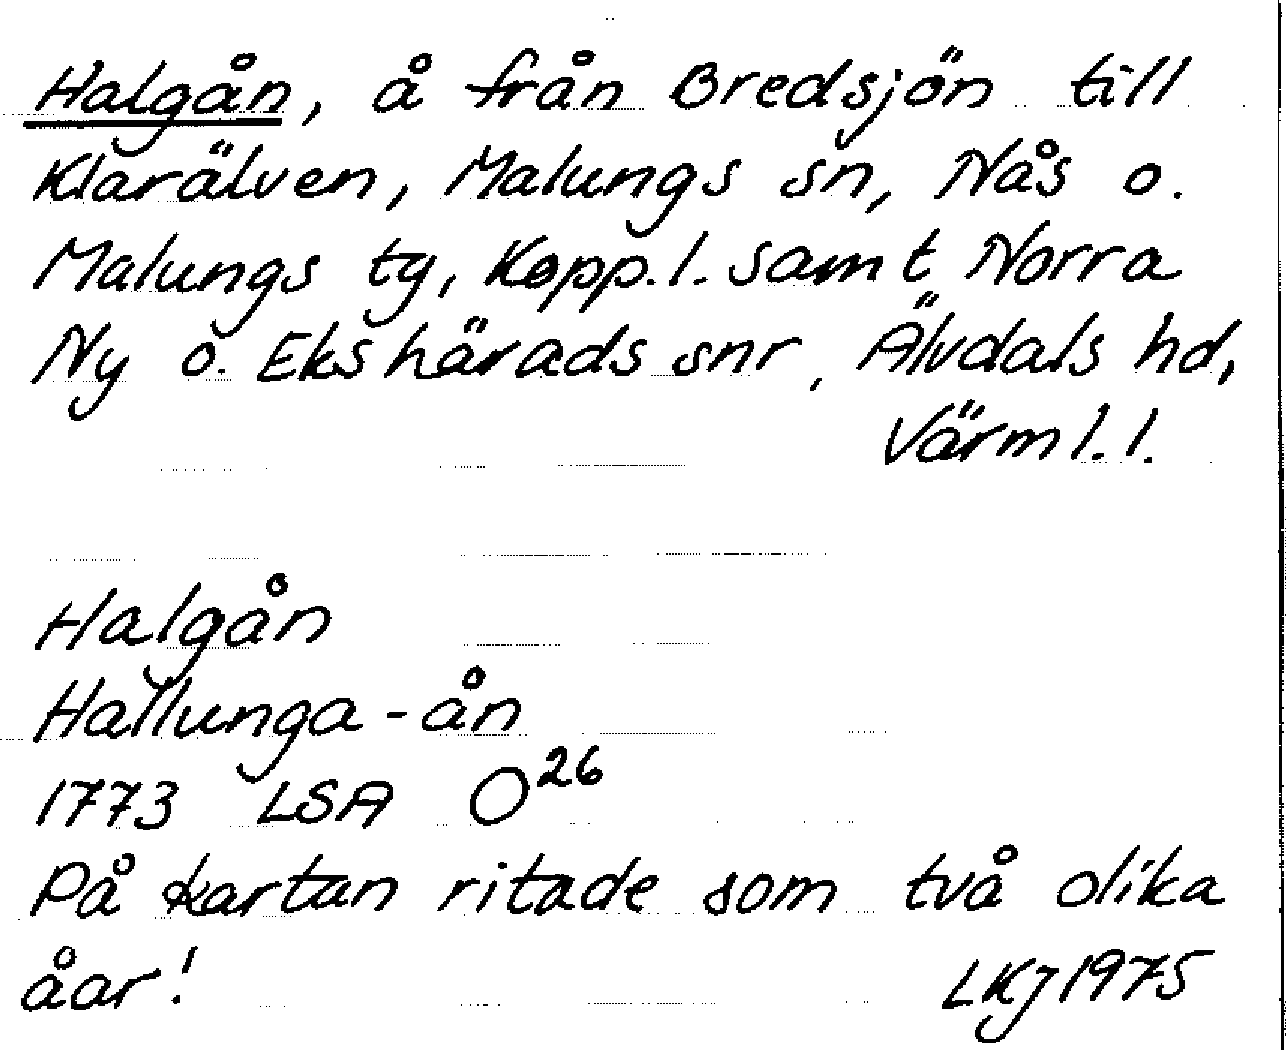 Halgån, å från Bredsjön till
Klarälven, Malungs sn, Nås o.
Malungs tg, Kopp.l. samt Norra
Ny o. Ekshärads snr, Älvdals hd,
Värml.l.
Halgån
Hallunga-ån
1773 LSA O26
På kartan ritade som två olika
åar!
LKJ 1975